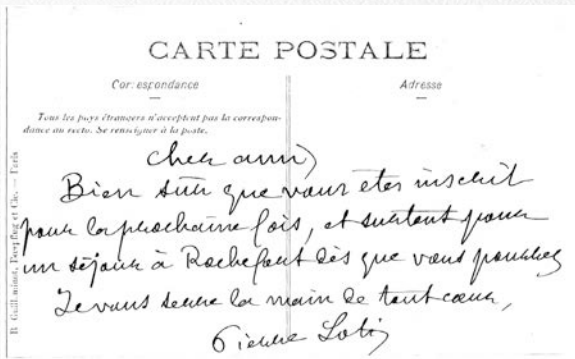 CARTE POSTALE
Correspondance
Adresse
Tous les pays étrangers n'acceptent pas la correspon-
dance au recto. Se renseigner à la poste.
Cher ami,
Bien sûr que vous êtes inscrit
pour la prochaine fois, et surtout pour
un séjour à Rochefort dès que vous pourrez
Je vous serre la main de tout cœur,
Pierre Loti
et Cie. — Paris